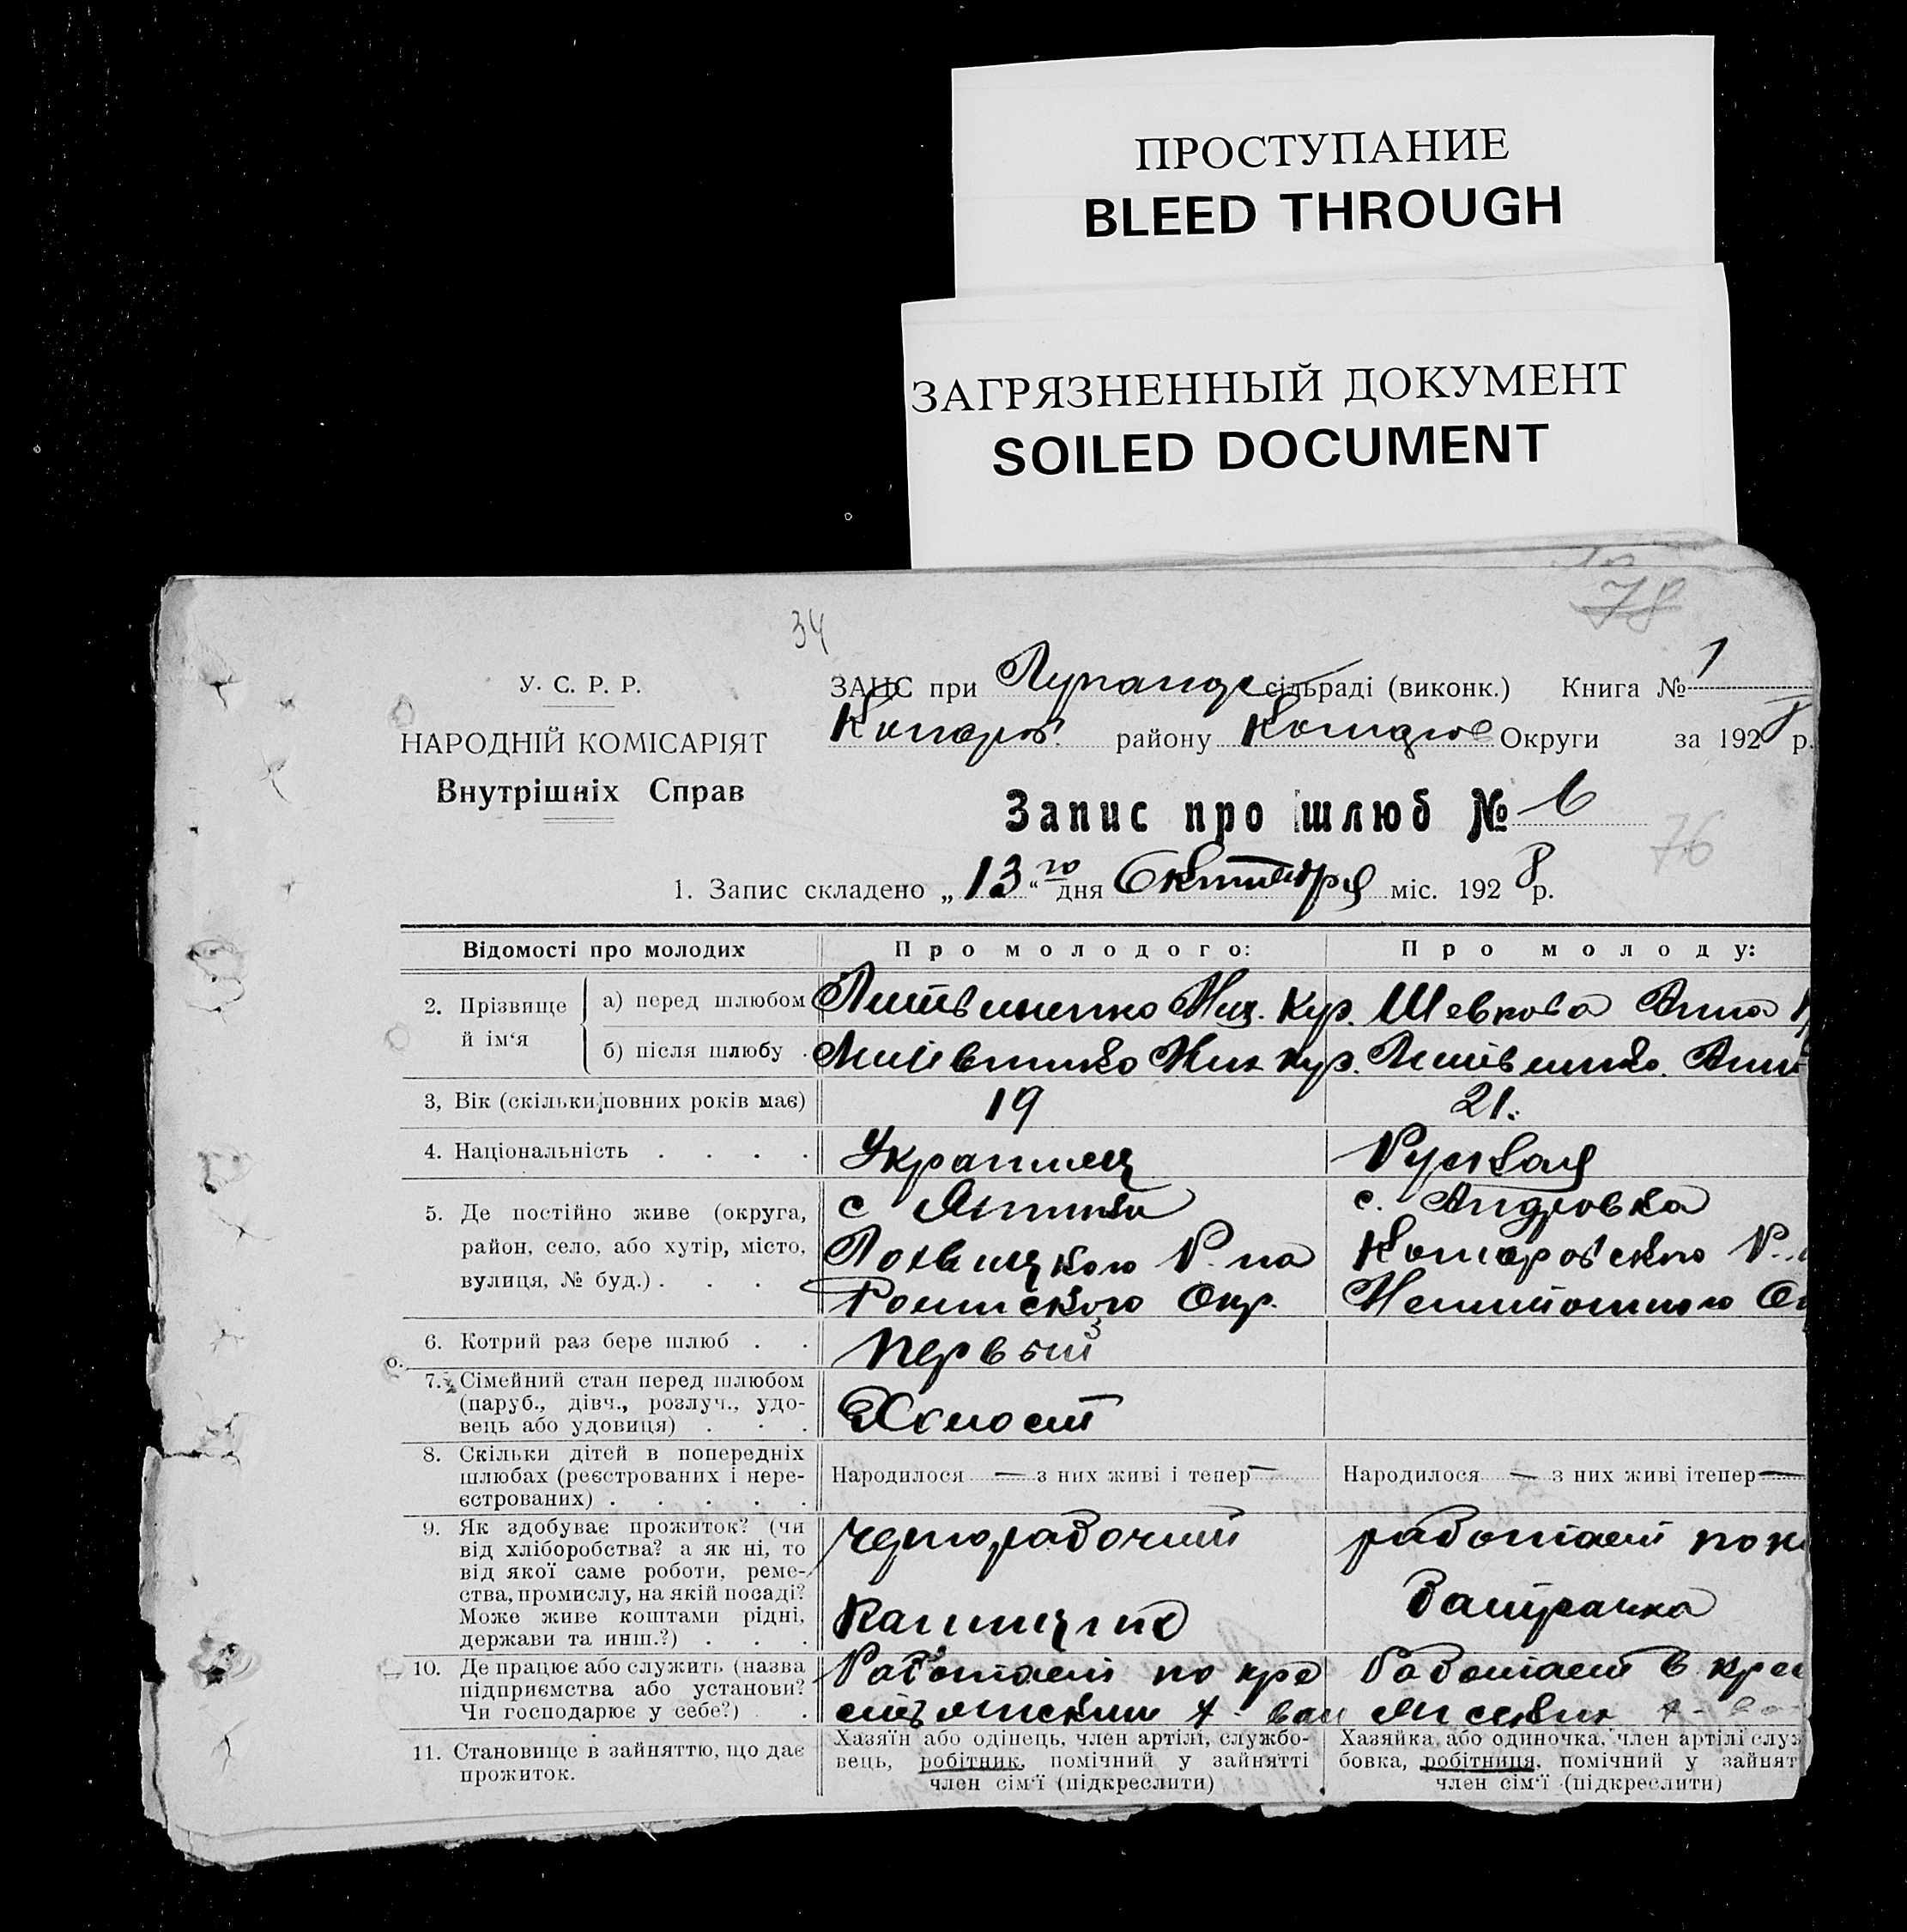 ПРОСТУПАНИЕ
BLEED THROUGH
ЗАГРЯЗНЕННЫЙ ДОКУМЕНТ
SOILED DOCUMENT
78
34
У. С. Р. Р.
НАРОДНІЙ КОМІСАРІЯТ
Внутрішніх Справ
ЗАЦС при сільраді (виконк.) Книга № 1
району Округи за 1928 р.
Запис про шлюб № 6
76
1. Запис складено „13го“ дня Октября міс. 1928 р.
Відомості про молодих Про молодого: Про молоду:
2. Прізвище й ім‘я а) перед шлюбом Литвиненко Ник. Кур. Шевкова Анна
б) після шлюбу . Литвиненко Ник Кур. Литвиненко. Анна
3, Вік (скільки повних років має) 19 21.
4. Національність . . . . Украинец Руская
5. Де постійно живе (округа, с с. Андровка
район, село, або хутір, місто, Лохвицкого Р-на Комаровского Р.
вулиця, № буд.) . . . Роменского Окр.
6. Котрий раз бере шлюб . . первый
7. Сімейний стан перед шлюбом
(паруб., дівч., розлуч., удо-
вець або удовиця) . . . Холост
8. Скільки дітей в попередніх
шлюбах (реєстрованих і нере- Народилося — з них живі і тепер — Народилося — з них живі ітепер —
єстрованих) . . . . .
9. Як здобуває прожиток? (чи
від хліборобства? а як ні, то
від якої саме роботи, реме-
ства, промислу, на якій посаді?
Може живе коштами рідні,
держави та инш.?) . . .
чернорабочий работает по
Батрачка
10. Де працює або служить (назва
підприємства або установи?
Чи господарює у себе?) .
Работает по кре Работает в крес
стьянским х-вам янских х-ва
11. Становище в зайняттю, що дає
прожиток.
Хазяїн або одінець, член артілі, службо-
вець, робітник, помічний у зайнятті
член сім‘ї (підкреслити)
Хазяйка або одиночка, член артілі служ
бовка, робітниця, помічний у зайнят
член сім‘ї (підкреслити)